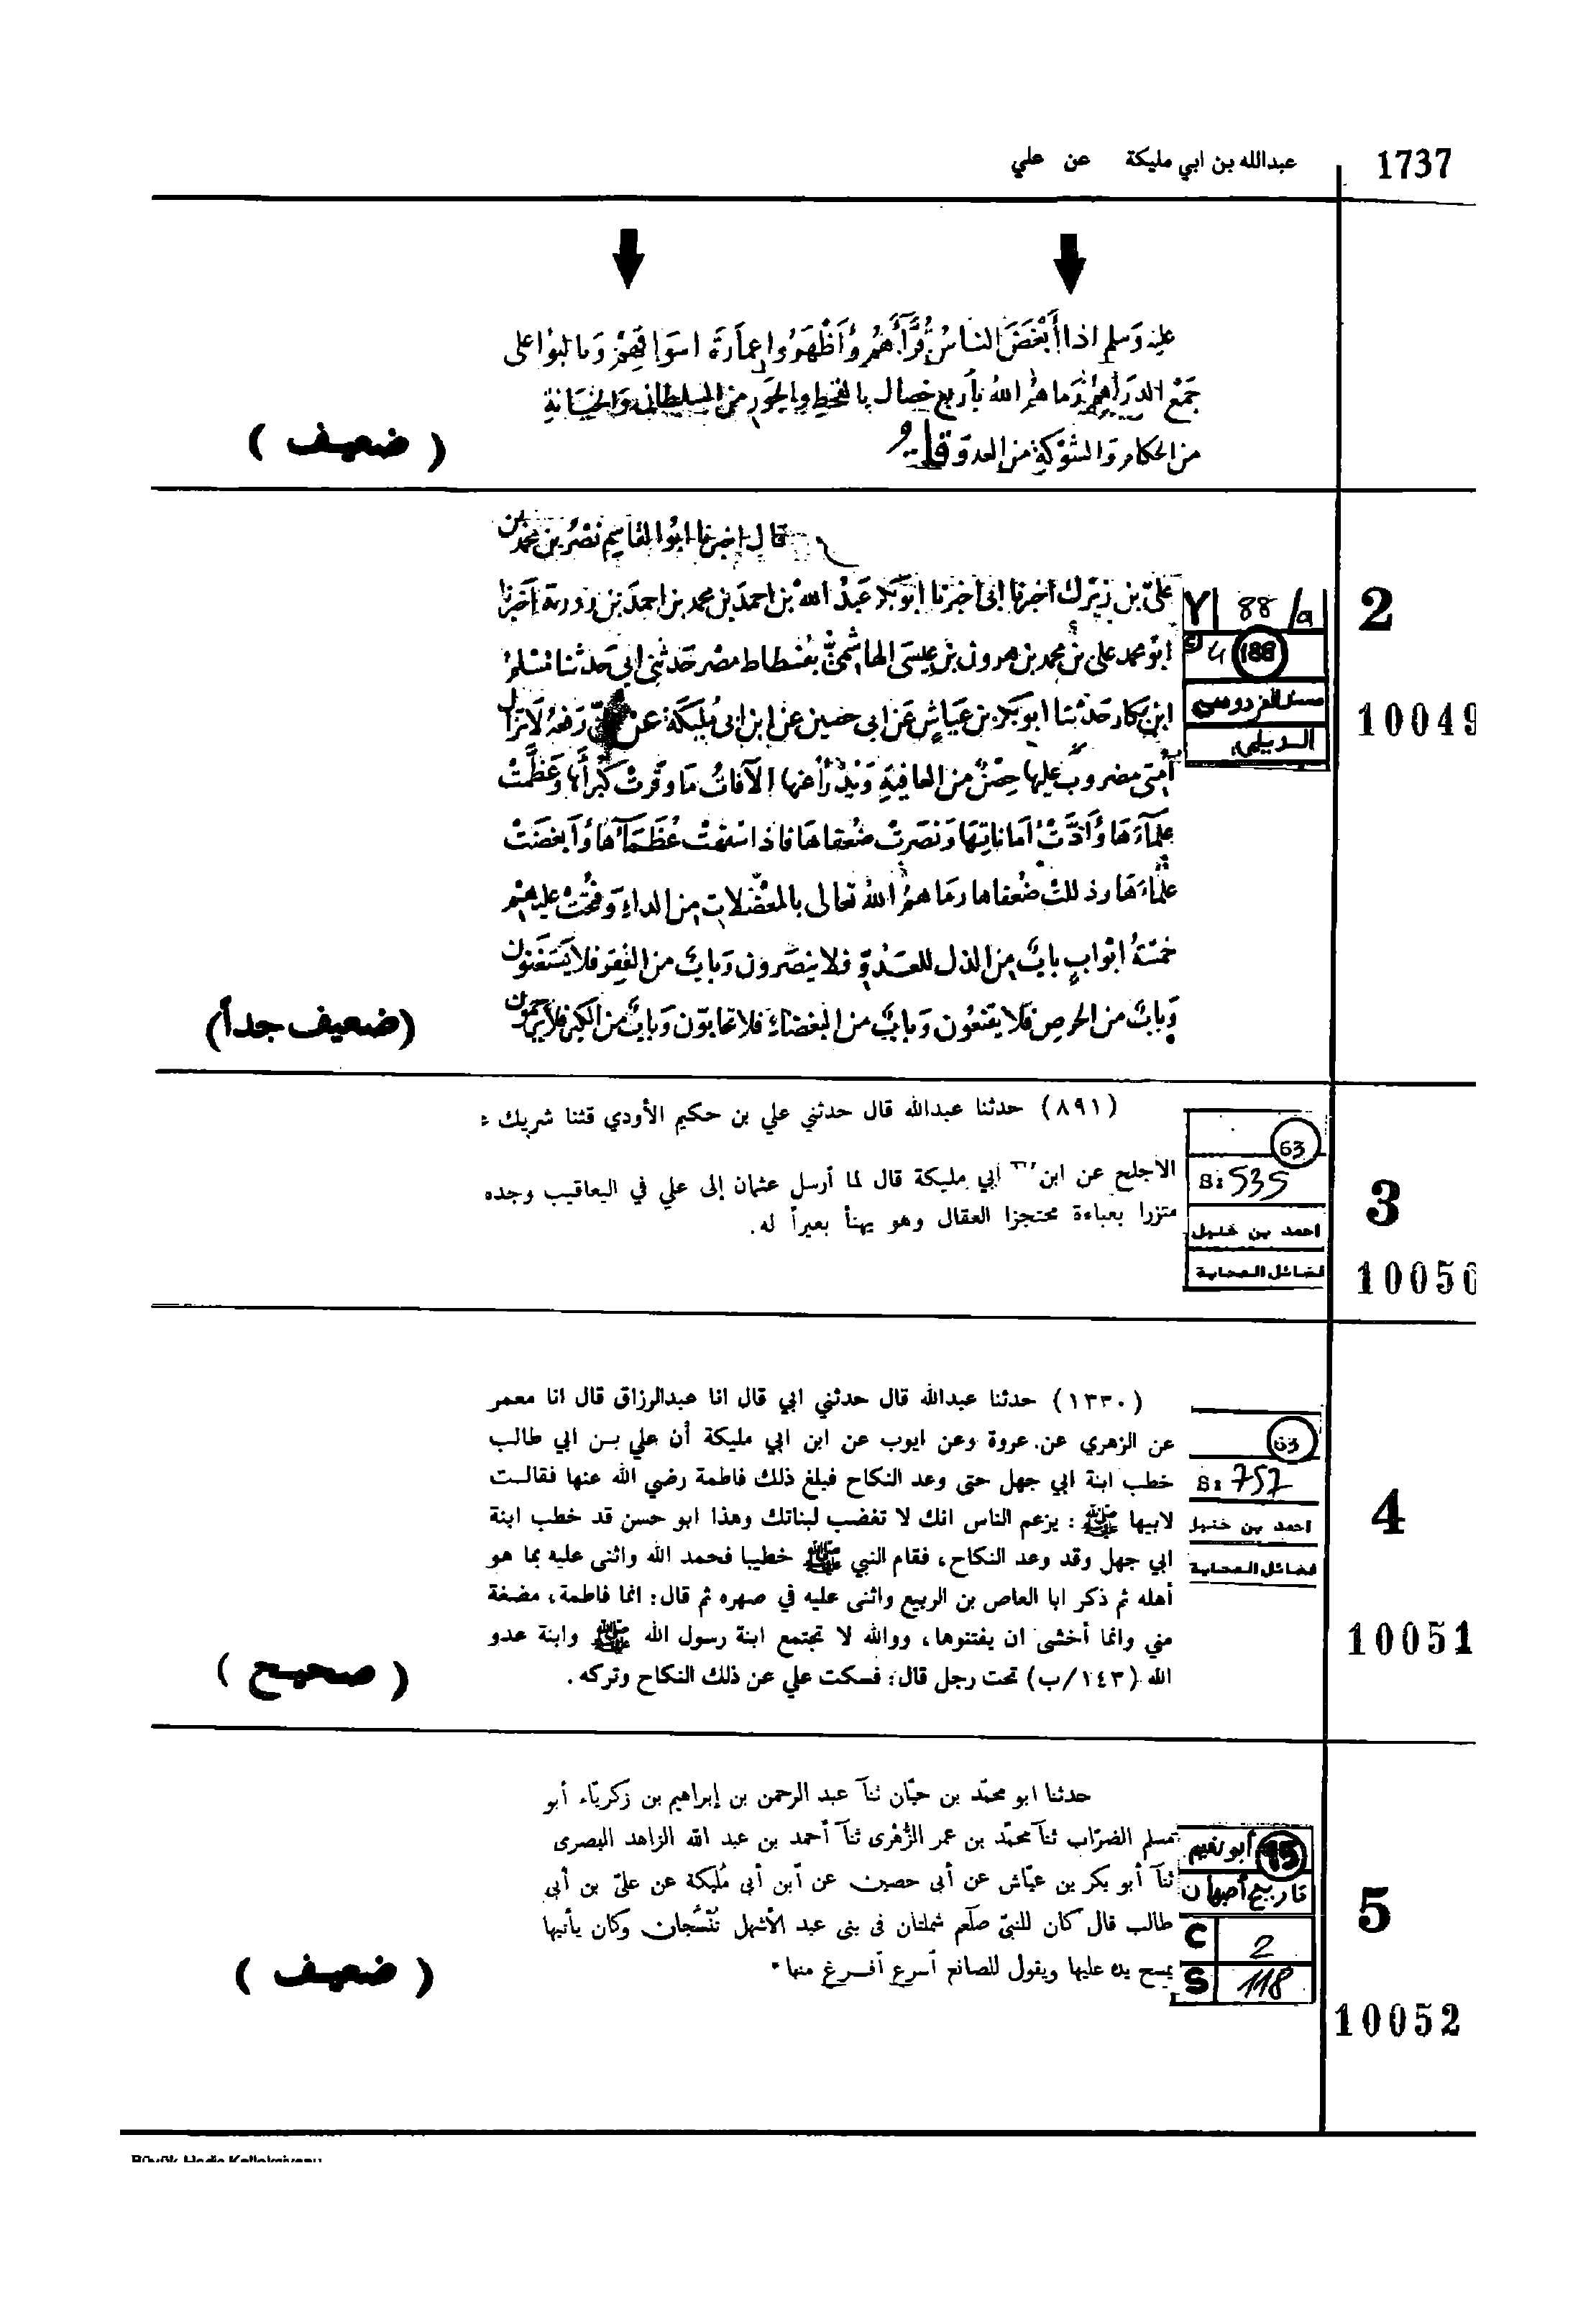 1737
عبدالله بن ابي مليكة عن علي
عليه وَسلم اذا أَبْغَضَ الناسُ فُقَرَآءَهُمْ وَأَظْهَرُوا عِمَارَةَ اسوَاقِهِمْ وَتَالبوُا على
جَمْعْ الدرَاهِمْ رَمَاهمُ اللهُ بأربع خِصال بالقحط والجَور من السلطان وَالخيَانةِ
من الحكام وَالشوْكةِ من العدوّ
( ضعيف )
2
قال اخبرنا ابوُ القاسِم نَصْرُ بن محمد بن
علىّ بن زيرك اخبرنا ابى اخبرنا ابوُبكر عَبدُ اللهْ بن احمدَ بن محمد بن احمدَ بن اخبرنا
ابوُ محمد على بن محمد بن هرون بن عيسَى الهاشمىُّ بفسطاط مصْر حَدثنى ابي حَدثنا مُسْلمُ
ابن بكار حَدثنا ابوبكر بن عَياشٍ عَن ابي حصين عن ابن ابى مُلَيكَة عَن رَفعَهُ لَاتزال
اُمتى مضروبٌ عليها حِصْنٌ من العافيةِ وَيُدْرَأُ عنها الآفاتُ مَا وَقرتْ كُبرَآءَها وَعَظَّمتْ
علمَآءَهَا وَأدَّتْ اَمَاناتِهَا وَنَصَرتْ ضُعَفاهَا فاذا عُظمَآءَهَا وَأبغضَتْ
علمَاءَهَا وذللتْ ضُعفاها رمَاهمُ اللهُ تعالى بالمعْضلاتِ من الداءِ وَفُتحتْ عليهمْ
خمسَةُ ابْوابٍ بابٌ من الذل للعَدُوّ فلا ينصَرون وَبابٌ من الفقِر فلا يَستَغنون
وَبابٌ من الحرصِ فلا يقنعُون وَبابٌ من البغضاءِ فلا تحابوّن وَبابٌ من الكبر فلا يرحمون
(ضعيف جداً)
Y 88/a
4 188
مسند الفردوس
الديلمي
10049
3
(٨٩١) حدثنا عبدالله قال حدثني علي بن حكيم الأودي قثنا شريك
الأجلح عن ابن ابي مليكة قال لما أرسل عثمان إلى علي في اليعاقيب وجده
متزرا بعباءة محتجزا العقال وهو يهنأ بعيراً له.
63
S: 535
احمد بن حنبل
فضائل الصحابة
10050
4
(١٣٣٠) حدثنا عبدالله قال حدثني ابي قال انا عبدالرزاق قال انا معمر
عن الزهري عن عروة وعن ايوب عن ابن ابي مليكة أن علي بن ابي طالب
خطب ابنة ابي جهل حتى وعد النكاح فبلغ ذلك فاطمة رضي الله عنها فقالت
لابيها ﷺ : يزعم الناس انك لا تغضب لبناتك وهذا ابو حسن قد خطب ابنة
ابي جهل وقد وعد النكاح، فقام النبي ﷺ خطيبا فحمد الله واثنى عليه بما هو
أهله ثم ذكر ابا العاص بن الربيع واثنى عليه في صهره ثم قال: انما فاطمة، مضغة
مني وانما أخشى ان يفتنوها، ووالله لا تجتمع ابنة رسول الله ﷺ وابنة عدو
الله (١٤٣/ب) تحت رجل قال: فسكت علي عن ذلك النكاح وتركه.
( صحيح )
63
S: 757
احمد بن حنبل
فضائل الصحابة
10051
5
حدثنا ابو محمّد بن حيّان ثنآ عبد الرحمن بن إبراهيم بن زكريّاء أبو
مسلم الضرّاب ثنآ محمّد بن عمر الزُهْرى ثنآ أحمد بن عبد الله الزاهد البصرى
ثنآ أبو بكر بن عيّاش عن أبى حصين عن أبن أبى مُليكة عن علىّ بن أبى
طالب قال كان للنبىّ صلّعم شملتان فى بنى عبد الأشهل تُنْسَجان وكان يأتيها
يمسح يده عليها ويقول للصانع أسرع أفرغ منها
( ضعيف )
أبو نعيم 95
تاريخ أصبهان
C 2
S 118
10052
Büyük Hadis Kolleksiyonu